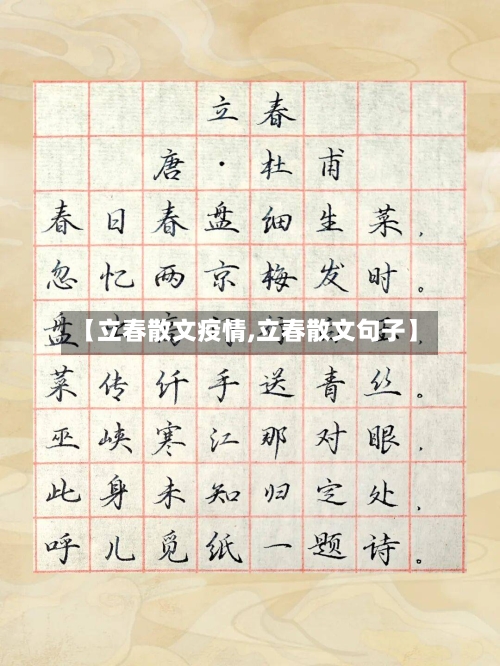 立春
唐·杜甫
春日春盘细生菜,
忽忆两京梅发时。
盘
【立春散文疫情,立春散文句子】
菜传纤手送青丝。
巫峡寒江那对眼,
此身未知归定处,
呼儿觅纸一题诗。